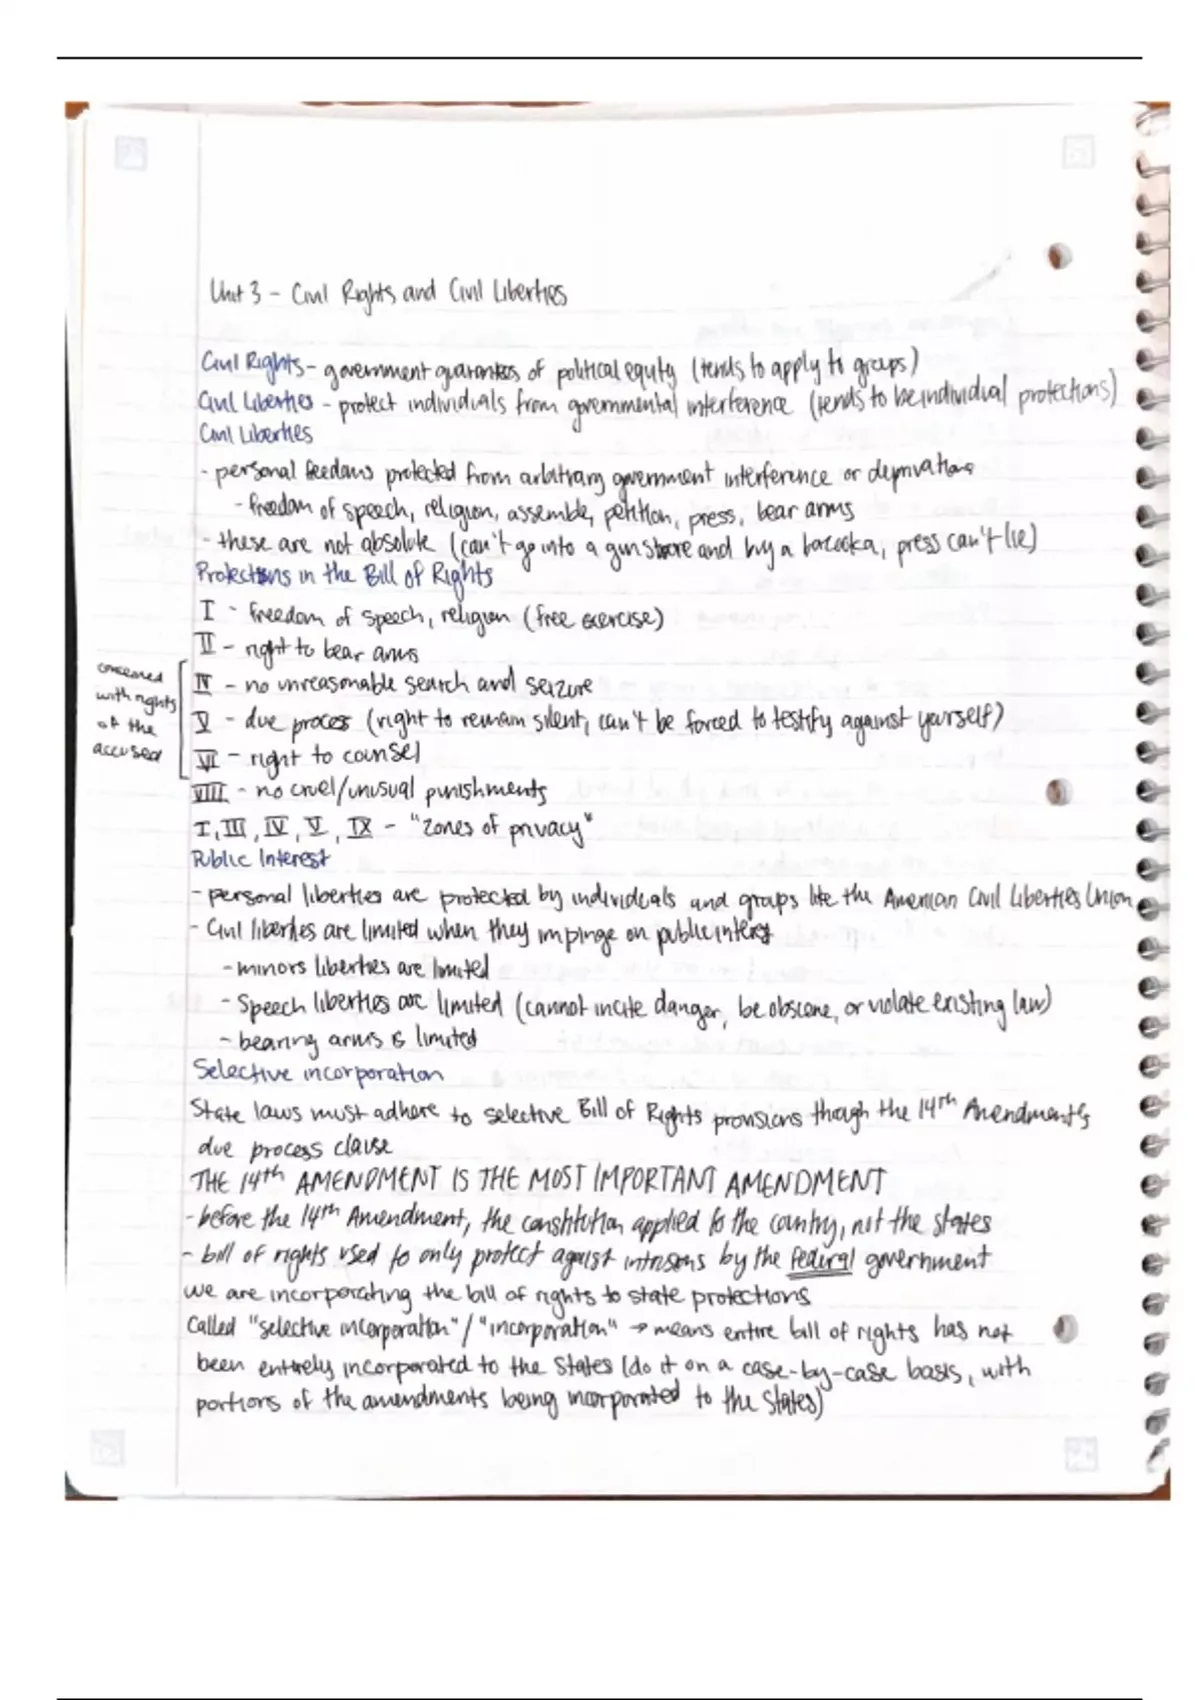 Unit 3 - Civil Rights and Civil Liberties
Civil Rights - government guarantees of political equity (tends to apply to groups)
Civil Liberties - protect individuals from governmental interference (tends to be individual protections)
Civil Liberties
- personal feedoms protected from arbitrary government interference or deprivations
- freedom of speech, religion, assemble, petition, press, bear arms
- these are not absolute (can't go into a gun store and buy a bazooka, press can't lie)
Protections in the Bill of Rights
I - freedom of speech, religion (free exercise)
II - right to bear arms
concerned
with rights
of the
accused
IV - no unreasonable search and seizure
V - due process (right to remain silent, can't be forced to testify against yourself)
VI - right to counsel
VIII - no cruel/unusual punishments
I, III, IV, V, IX - "zones of privacy"
Public Interest
- personal liberties are protected by individuals and groups like the American Civil Liberties Union
- Civil liberties are limited when they impinge on public interest
- minors liberties are limited
- Speech liberties are limited (cannot incite danger, be obscene, or violate existing law)
- bearing arms is limited
Selective incorporation
State laws must adhere to selective Bill of Rights provisions though the 14th Amendment's
due process clause
THE 14th AMENDMENT IS THE MOST IMPORTANT AMENDMENT
- before the 14th Amendment, the constitution applied to the country, not the states
- bill of rights used to only protect against intrusions by the federal government
we are incorporating the bill of rights to state protections
Called "selective incorporation" / "incorporation" → means entire bill of rights has not
been entirely incorporated to the states (do it on a case-by-case basis, with
portions of the amendments being incorporated to the states)